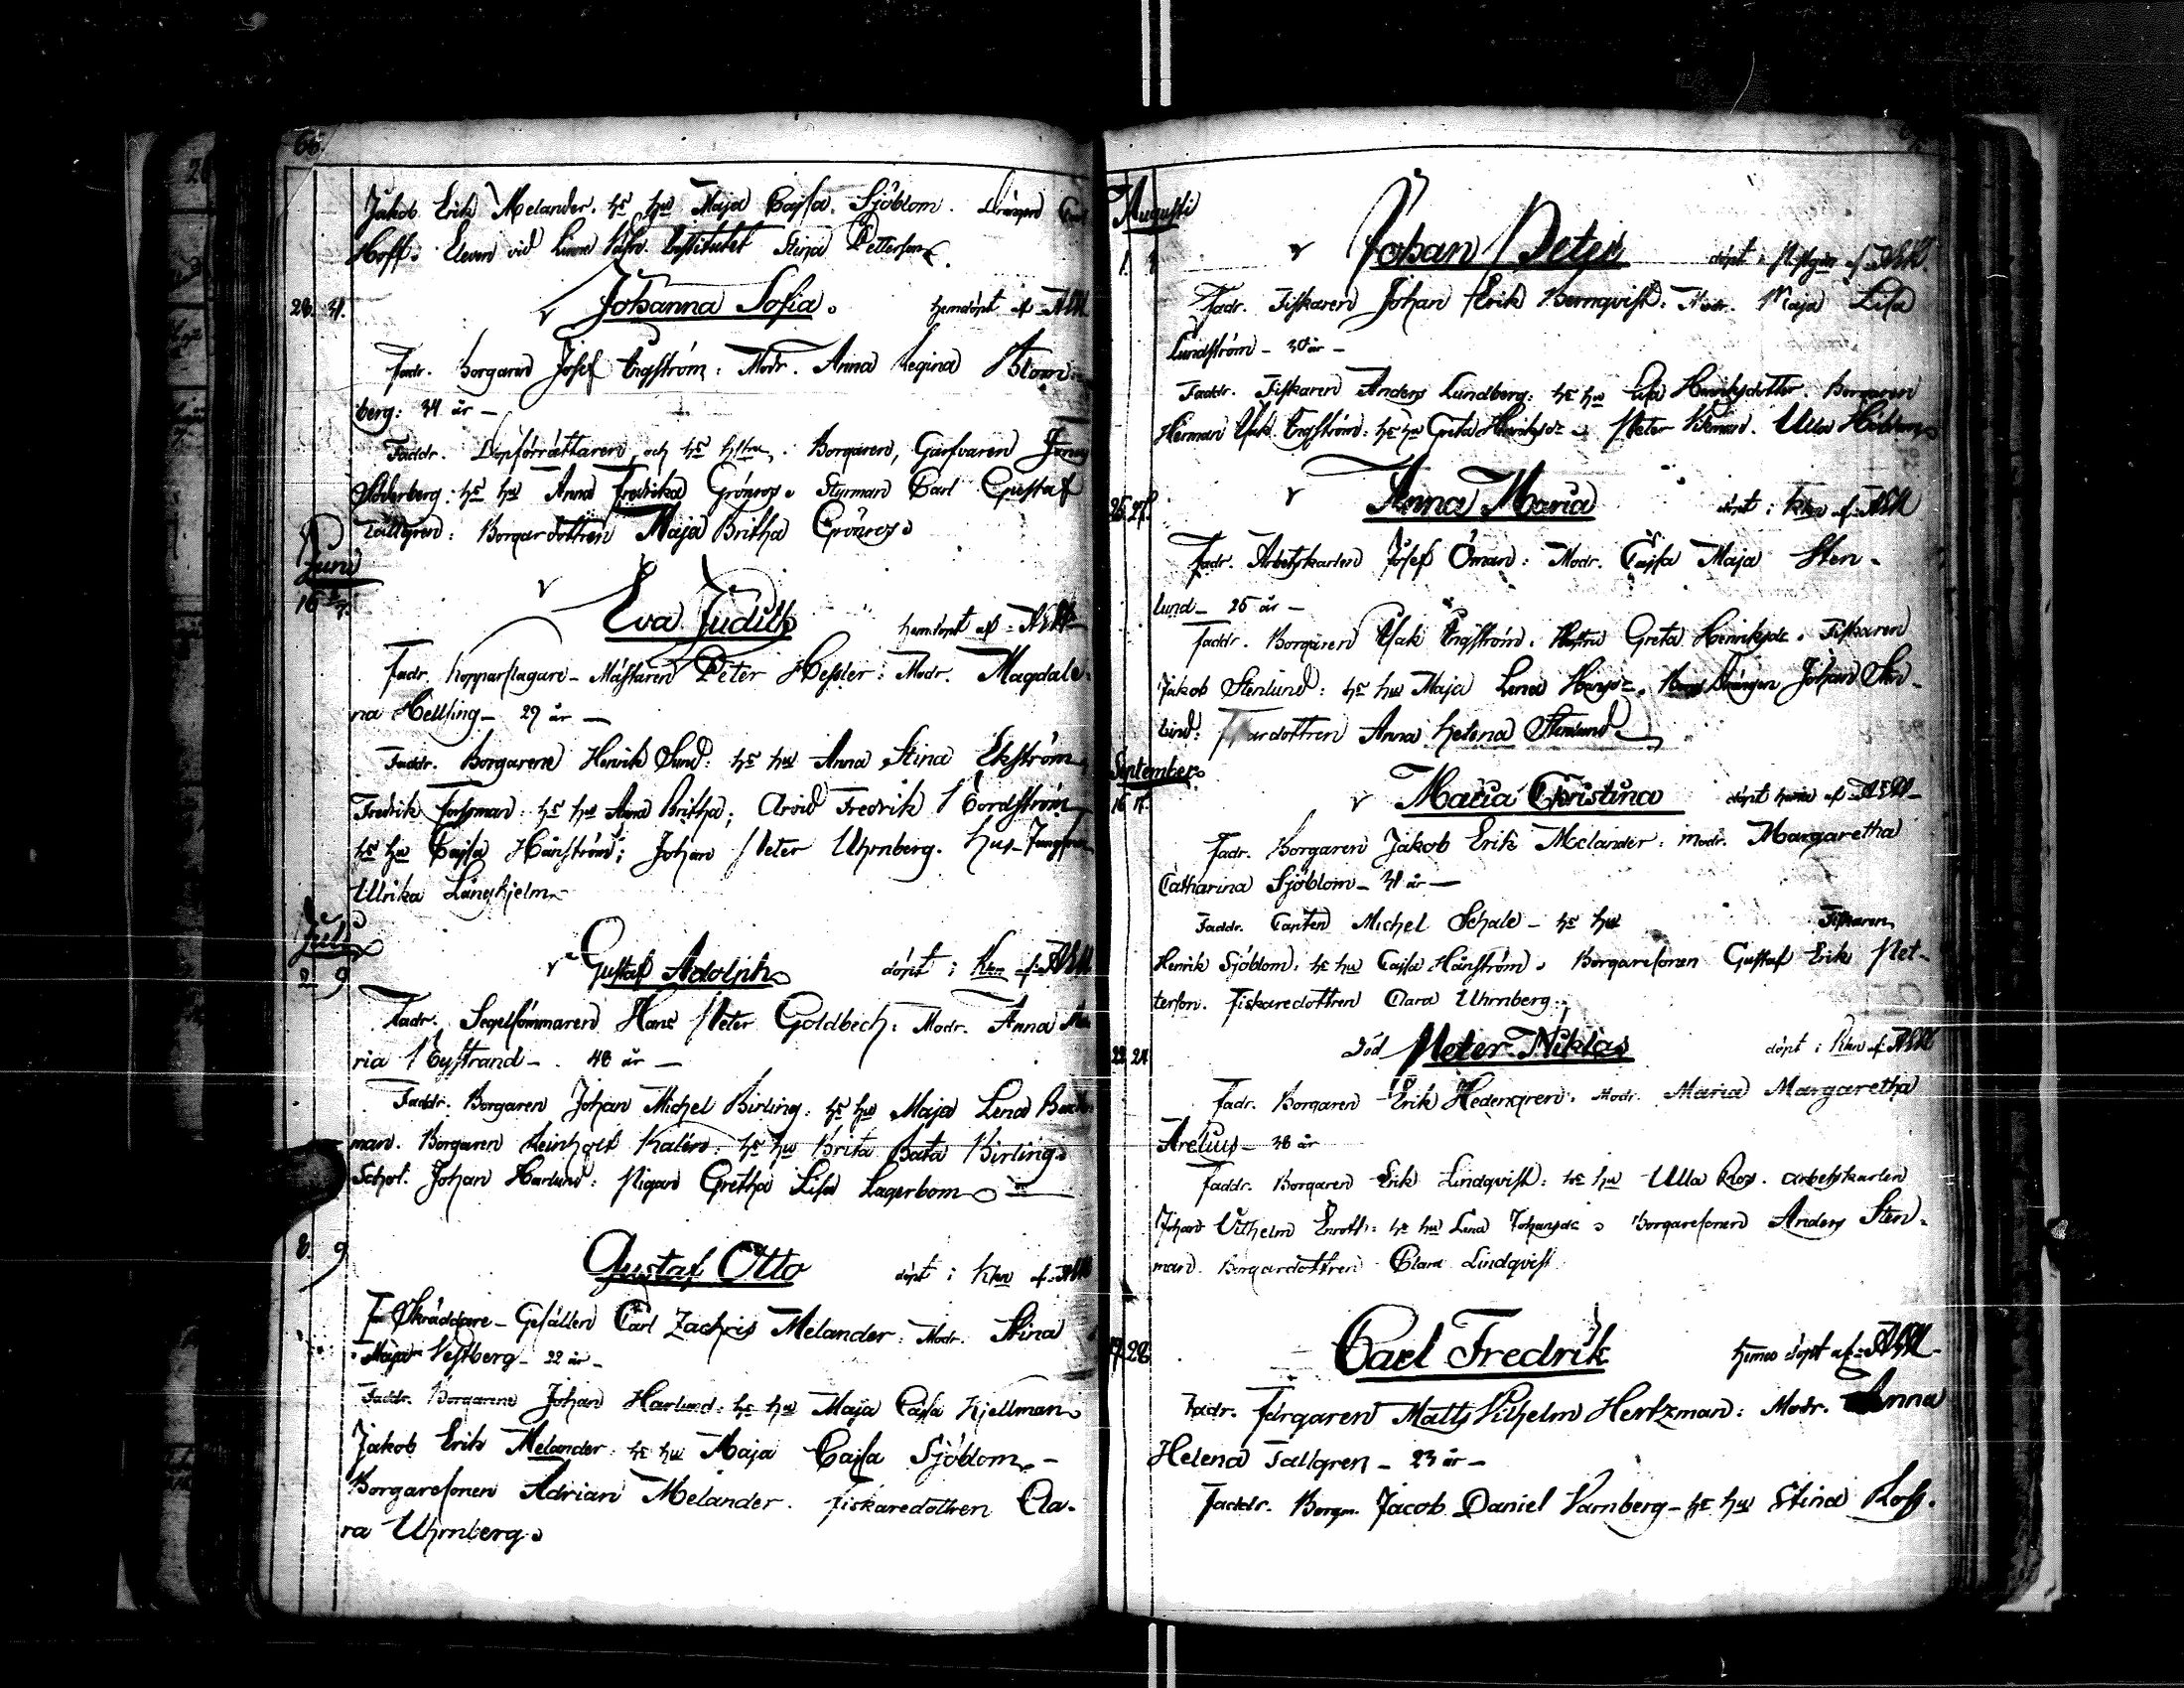 66.
Jakob Erik Melander. hs hu Maja Cajsa Sjöblom. Drängen Carl
Hoff. Eleven vid Institutet Stina Petterson.
28. 31. Johanna Sofia. hemdöpt af AEM
Fadr. Borgaren Josef Engström: Modr. Anna Regina Blom-
berg: 34 år —
Faddr. Dopförrättaren och hs hstru. Borgaren, Garfvaren
Söderberg: hs hu Anna Fredrika Grönros. Styrman Carl Gustaf
Tallgren: Borgardottren Maja Britha Grönros.
Juni
16 Eva Judith hemdöpt af AEM
Fadr. Kopparslagare-Mästaren Peter Hessler: Modr. Magdale-
na Hellsing — 29 år —
Faddr. Borgarene Henrik Sund: hs hu Anna Stina Ekström,
Fredrik Forssman: hs hu Anna Britha; Arvid Fredrik Nordström
hs hu Cajsa Hånström; Johan Peter Uhrnberg. Hus-Jungfrun
Ulrika Långhjelm
Juli
2. 9 Gustaf Adolph döpt i Kkn af AEM
Fadr. Segelsömmaren Hans Peter Goldbech: Modr. Anna Ma-
ria Nystrand — 48 år —
Faddr. Borgaren Johan Michel Birling: hs hu Maja Lena
man. Borgaren Reinholt Kalén: hs hu Brita Bata Birling.
Schol. Johan Harlund: Pigan Gretha Lisa Lagerbom
8. 9 Gustaf Otto döpt i Kkn af AEM
Skräddare-Gesällen Carl Zachris Melander: Modr. Stina
Maja Vestberg — 22 år —
Faddr. Borgarene Johan Harlund: hs hu Maja Cajsa Kjellman
Jakob Erik Melander: hs hu Maja Cajsa Sjöblom. —
Borgaresonen Adrian Melander. Fiskaredottren Cla-
ra Uhrnberg.
Augusti
1. Johan Peter döpt i af AEM.
Fadr. Fiskaren Johan Erik Bernqvist: Modr. Maja Lisa
Lundström — 30 år —
Faddr. Fiskaren Anders Lundberg: hs hu Lisa Henriksdotter. Borgaren
Herman Isak Engström: hs hu Greta Peter Ulla
26. 27. Anna Maria döpt i Kkn af AEM
Fadr. Arbetskarlen Josef Öman: Modr. Cajsa Maja Sten-
lund — 25 år —
Faddr. Borgaren Isak Engström. Hustru Greta Henriksdr. Fiskaren
Jakob Stenlund: hs hu Maja Lena Drängen Johan Sten-
lund: Anna Helena Stenlund
September
16 17. Maria Christina döpt hema af AEM —
Fadr. Borgaren Jakob Erik Melander: Modr. Margaretha
Catharina Sjöblom — 31 år —
Faddr. Capten Michel Schale — hs hu Fiskaren
Henrik Sjöblom: hs hu Cajsa Hånström. Borgaresonen Gustaf Erik Pet-
terson. Fiskaredottren Clara Uhrnberg.
22. 24. död Peter Niklas döpt i Kkn af AEM
Fadr. Borgaren Erik Hedengren: Modr. Maria Margaretha
Arelius — 38 år
Faddr. Borgaren Erik Lindqvist: hs hu Ulla Ros. Arbetskarlen
Johan Vilhelm Enroth: hs hu Lena Johansdr. Borgaresonen Anders Sten-
man. Borgardottren Clara Lindqvist
28 Carl Fredrik hema döpt af AEM —
Fadr. Färgaren Matts Vilhelm Hertzman: Modr. Anna
Helena Tallgren — 23 år —
Faddr. Borgm. Jacob Daniel Varnberg — hs hu Stina Ross.